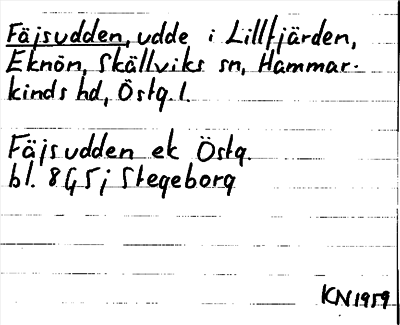 Fäjsudden, udde i Lillfjärden,
Eknön, Skällviks sn, Hammar-
kinds hd, Östg. l.
Fäjsudden ek Östg.
bl. 8G5j Stegeborg
KN1959